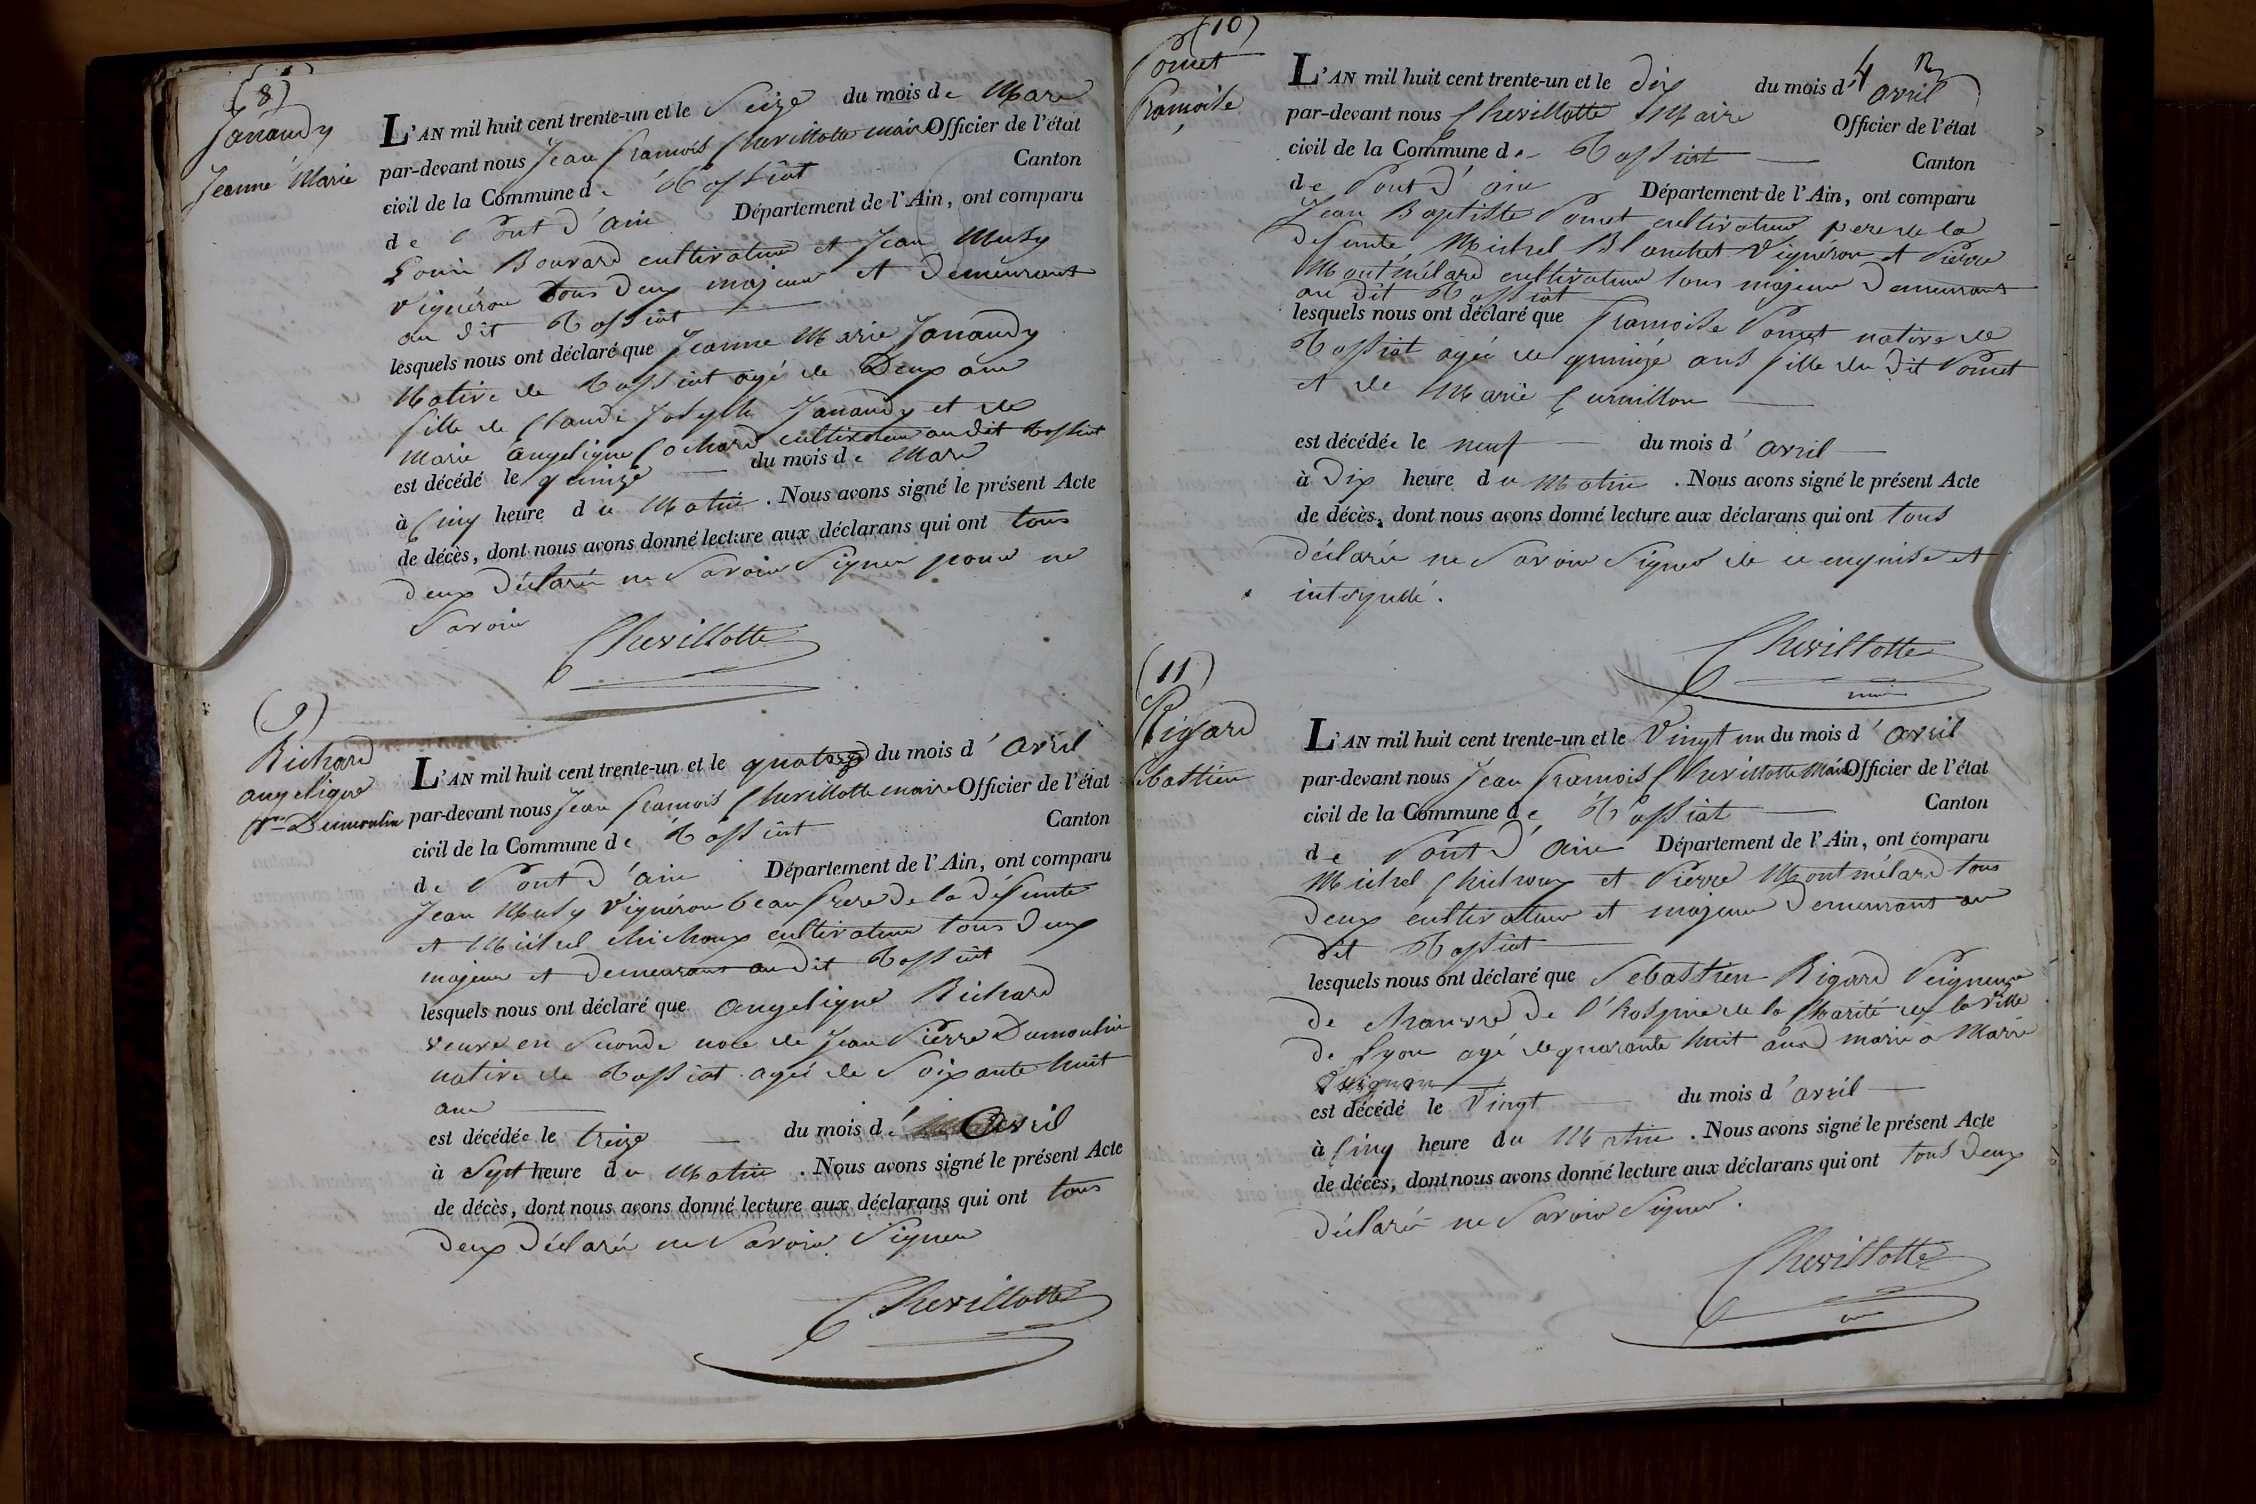 (8)
Janaudy
Jeanne Marie
L'AN mil huit cent trente-un et le Seize du mois de Mars
par-devant nous Jean francois Chevillotte maire Officier de l'état
civil de la Commune de Tossiat Canton
de Pont d'ain Département de l'Ain, ont comparu
Louis Bouvard cultivateur et Jean Musy
Vignéron tous deux majeurs et Demeurants
au dit Tossiat
lesquels nous ont déclaré que Jeanne Marie Janaudy
Native de Tossiat agé de Deux ans
fille de Claude Joseph Janaudy et de
Marie angelique Cochard cultivateur au dit Tossiat
est décédé le quinze du mois de Mars
à Cinq heure du Matin. Nous avons signé le présent Acte
de décès, dont nous avons donné lecture aux déclarans qui ont tous
deux Déclaré ne Savoir Signer pour ne
Savoir
Chevillotte
(9)
Richard
angelique
Dumoulin
L'AN mil huit cent trente-un et le quatorze du mois d'avril
par-devant nous Jean francois Chevillotte maire Officier de l'état
civil de la Commune de Tossiat Canton
de Pont d'ain Département de l'Ain, ont comparu
Jean Musy Vignéron beau frere de la défunte
et Michel chichoux cultivateur tous deux
majeurs et Demeurans au dit Tossiat
lesquels nous ont déclaré que angelique Richard
veuve en Seconde noce de Jean Pierre Dumoulin
native de Tossiat agée de Soixante huit
ans
est décédée le treize du mois d'avril
à Sept heure du Matin. Nous avons signé le présent Acte
de décès, dont nous avons donné lecture aux déclarans qui ont tous
deux Déclaré ne Savoir Signer
Chevillotte
(10)
Pomet
francoise
4
L'AN mil huit cent trente-un et le dix du mois d'avril
par-devant nous Chevillotte Maire Officier de l'état
civil de la Commune de Tossiat Canton
de Pont d'ain Département de l'Ain, ont comparu
Jean Baptiste Pomet cultivateur pere de la
defunte Michel Blanchet Vignéron et Pierre
Montmélard cultivateur tous majeurs Demeurans
au dit Tossiat
lesquels nous ont déclaré que francoise Pomet native de
Tossiat agée de quinze ans fille du dit Pomet
et de Marie Curnillon
est décédée le neuf du mois d'avril
à Dix heure du Matin. Nous avons signé le présent Acte
de décès, dont nous avons donné lecture aux déclarans qui ont tous
déclaré ne Savoir Signer de ce enquise et
interpellé.
Chevillotte
(11)
Rigard
Sebastien
L'AN mil huit cent trente-un et le Vingt un du mois d'avril
par-devant nous Jean francois Chevillotte Maire Officier de l'état
civil de la Commune de Tossiat Canton
de Pont d'Ain Département de l'Ain, ont comparu
Michel Chichoux et Pierre Montmélard tous
deux cultivateur et majeurs Demeurans au
dit Tossiat
lesquels nous ont déclaré que Sebastien Rigard Peigneur
de chanvre de l'hospice de la Charité de la Ville
de Lyon agé de quarante huit ans marié à Marie
est décédé le Vingt du mois d'avril
à Cinq heure du Matin. Nous avons signé le présent Acte
de décès, dont nous avons donné lecture aux déclarans qui ont tous Deux
déclaré ne Savoir Signer.
Chevillotte